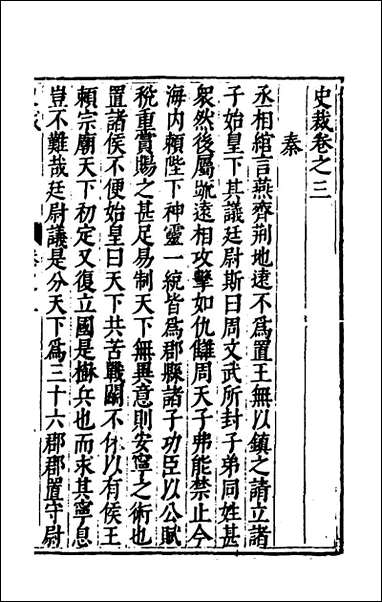 史裁卷之三
秦
丞相綰言燕齊荆地遠不爲置王無以鎮之請立諸
子始皇下其議廷尉斯曰周文武所封子弟同姓甚
衆然後屬䟽遠相攻擊如仇讎周天子弗能禁止今
海内頼陛下神靈一統皆爲郡縣諸子功臣以公賦
稅重賞賜之甚足易制天下無異意則安寧之術也
置諸侯不便始皇曰天下共苦戰鬬不休以有侯王
頼宗廟天下初定又復立國是樹兵也而求其寧息
豈不難哉廷尉議是分天下爲三十六郡郡置守尉